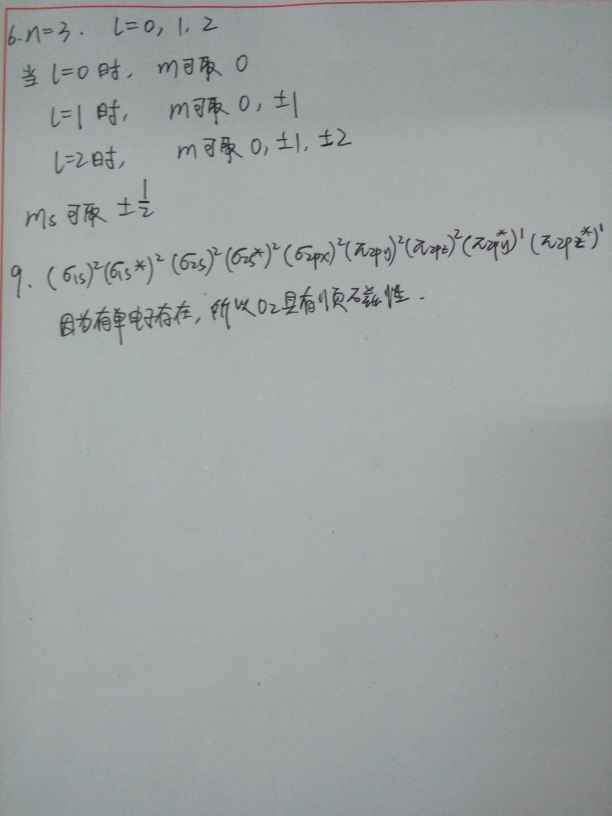 6. n=3. l=0, 1, 2
当 l=0 时, m可取 0
l=1 时, m可取 0, ±1
l=2时, m可取 0, ±1, ±2
ms 可取 ±1/2
9. (σ1s)²(σ1s*)²(σ2s)²(σ2s*)²(σ2px)²(π2py)²(π2pz)²(π2py*)¹(π2pz*)¹
因为有单电子存在, 所以O2具有顺磁性.